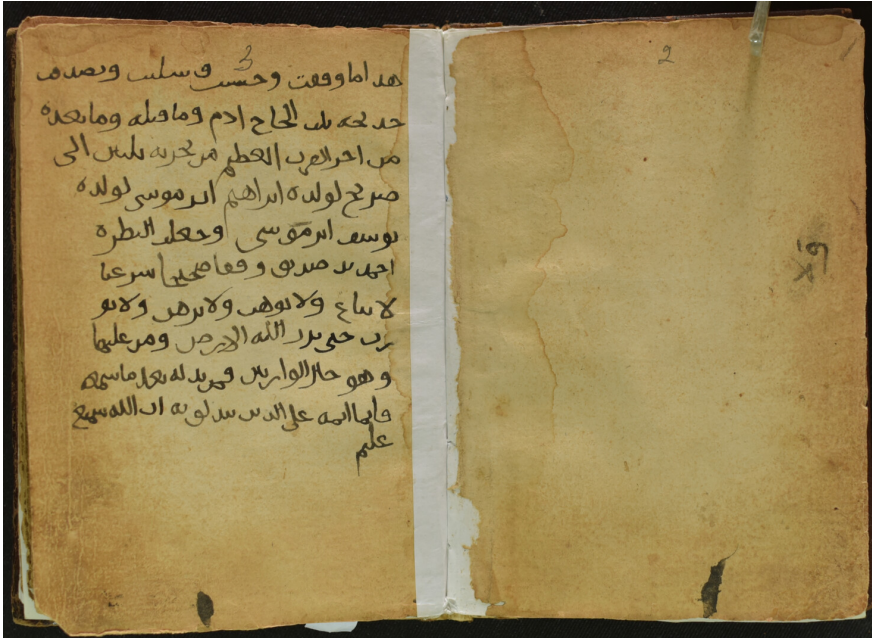 هذا ما وقفت وحبست وسبلت وتصدقت
خديجه بنت الحاج ادم وما قبله وما بعده
من اجر القرن العظيم من بحريه بلبيس الى
ضريح لولده ابراهيم ابن موسى لولده
يوسف ابن موسى وجعلت النظرة
احمد بن صديق وقفا صحيحا شرعيا
لا يباع ولا يوهب ولا يرهن ولا يو
رث حتى يرث الله الارض ومن عليها
وهو خير الوارثين فمن بدله بعد ما سمعه
فانما اثمه على الذين يبدلونه ان الله سميع
عليم
2
وقف